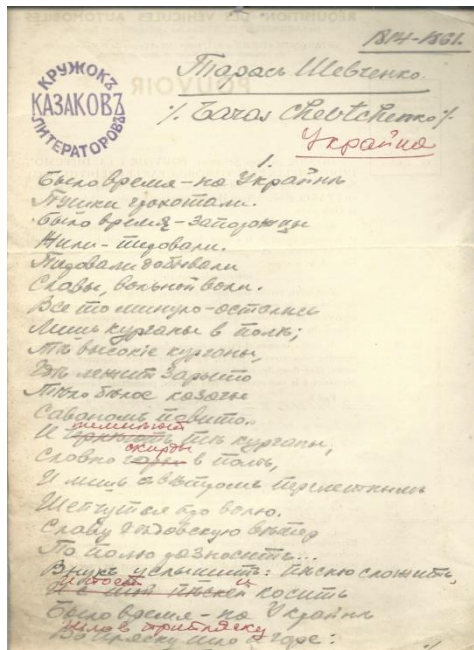 RÉQUISITION DES VÉHICULES AUTOMOBILES
1814-1861.
Тарасъ Шевченко.
POUVOIR
КРУЖОКЪ
КАЗАКОВЪ
ЛИТЕРАТОРОВЪ
/. Taras Chevtchenko /.
Украйна
1.
Было время – на Украйнѣ
Пушки грохотали.
Было время – Запорожцы
Жили – пировали.
Пировали, добывали
Славы, вольной воли.
Все то минуло – остались
Лишь курганы в полѣ;
Тѣ высокіе курганы,
Гдѣ лежит зарыто
Тѣло бѣлое казачье
Саваномъ повито.
темнѣют
И тѣ курганы,
скирды
Словно горы в полѣ,
И лишь с вѣтромъ перелетнымъ
Шепчутся про волю.
Славу дѣдовскую вѣтер
По полю разноситъ...
Внукъ услышитъ: пѣсню сложитъ,
и поет и
И с той пѣсней коситъ
Было время – на Украйнѣ
шло в припляску
Въ пляску шло и горе: